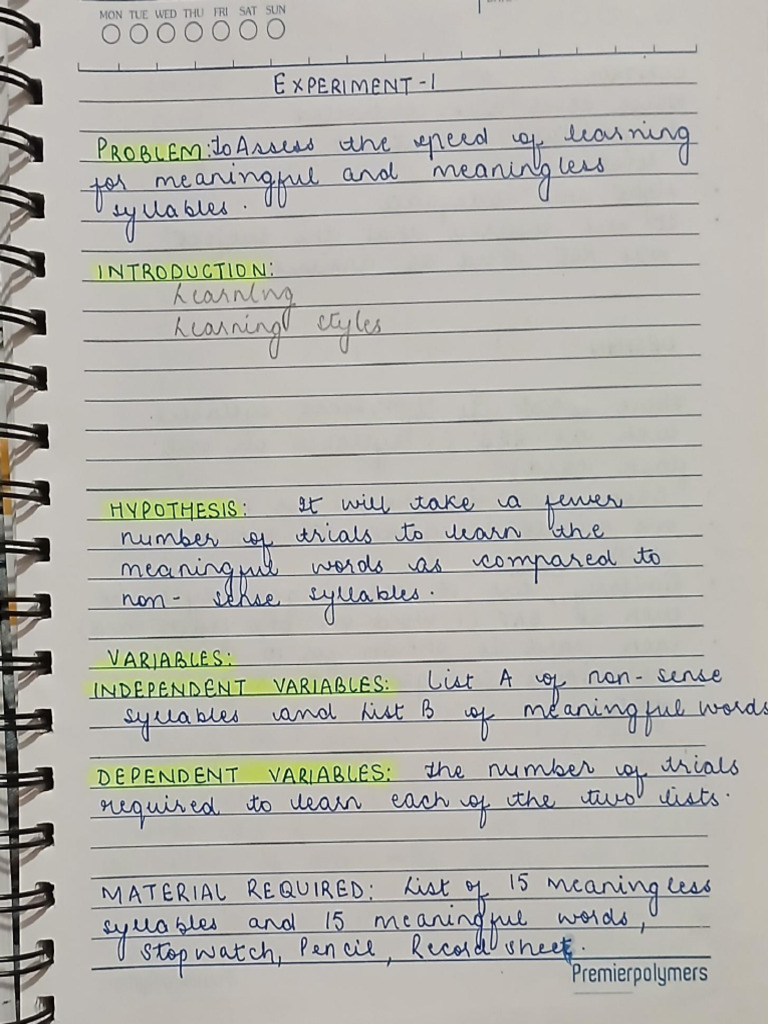 MON TUE WED THU FRI SAT SUN
EXPERIMENT-1
PROBLEM: to Assess the speed of learning
for meaningful and meaningless
syllables.
INTRODUCTION:
Learning
Learning styles
HYPOTHESIS: It will take a fewer
number of trials to learn the
meaningful words as compared to
non-sense syllables.
VARIABLES:
INDEPENDENT VARIABLES: List A of non-sense
syllables and List B of meaningful words
DEPENDENT VARIABLES: the number of trials
required to learn each of the two lists.
MATERIAL REQUIRED: List of 15 meaningless
syllables and 15 meaningful words,
Stopwatch, Pencil, Record sheet.
Premierpolymers